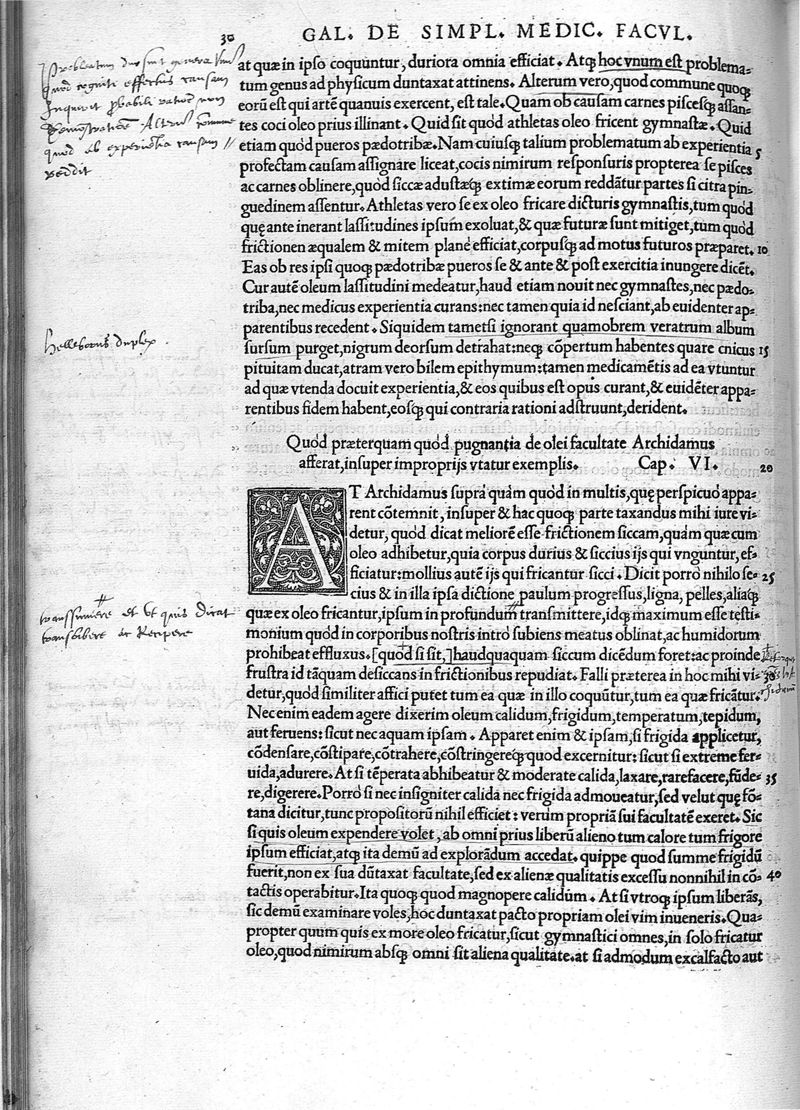 30
GAL. DE SIMPL. MEDIC. FACVL.
at quæ in ipso coquuntur, duriora omnia efficiat. Atqꝫ hoc vnum est problema⸗
tum genus ad physicum duntaxat attinens. Alterum vero, quod commune quoqꝫ
eorū est qui artē quanuis exercent, est tale. Quam ob causam carnes piscesqꝫ assan⸗
tes coci oleo prius illinant. Quid sit quòd athletas oleo fricent gymnastæ. Quid
etiam quòd pueros pædotribæ. Nam cuiusqꝫ talium problematum ab experientia 5
profectam causam assignare liceat, cocis nimirum responsuris propterea se pisces
ac carnes oblinere, quòd siccæ adustæqꝫ extimæ eorum reddātur partes si citra pin⸗
guedinem assentur. Athletas vero se ex oleo fricare dicturis gymnastis, tum quòd
quę ante inerant lassitudines ipsum exoluat, & quæ futuræ sunt mitiget, tum quòd
frictionen æqualem & mitem planè efficiat, corpusqꝫ ad motus futuros præparet. 10
Eas ob res ipsi quoqꝫ pædotribæ pueros se & ante & post exercitia inungere dicēt.
Cur autē oleum lassitudini medeatur, haud etiam nouit nec gymnastes, nec pædo⸗
triba, nec medicus experientia curans: nec tamen quia id nesciant, ab euidenter ap⸗
parentibus recedent. Siquidem tametsi ignorant quamobrem veratrum album
sursum purget, nigrum deorsum detrahat: neqꝫ cōpertum habentes quare cnicus 15
pituitam ducat, atram vero bilem epithymum: tamen medicamētis ad ea vtuntur
ad quæ vtenda docuit experientia, & eos quibus est opus curant, & euidēter appa⸗
rentibus fidem habent, eosqꝫ qui contraria rationi adstruunt, derident.
Quòd præterquam quòd pugnantia de olei facultate Archidamus
afferat, insuper improprijs vtatur exemplis. Cap. VI. 20
AT Archidamus supra quàm quòd in multis, quę perspicuò appa⸗
rent cōtemnit, insuper & hac quoqꝫ parte taxandus mihi iure vi⸗
detur, quòd dicat meliorē esse frictionem siccam, quàm quæ cum
oleo adhibetur, quia corpus durius & siccius ijs qui vnguntur, ef⸗
ficiatur: mollius autē ijs qui fricantur sicci. Dicit porrò nihilo se⸗ 25
cius & in illa ipsa dictione paulum progressus, ligna, pelles, aliaqꝫ
quæ ex oleo fricantur, ipsum in profundum transmittere, idqꝫ maximum esse testi⸗
monium quòd in corporibus nostris intrò subiens meatus oblinat, ac humidorum
prohibeat effluxus. [quod si sit,] haudquaquam siccum dicēdum foret: ac proinde
frustra id tāquam desiccans in frictionibus repudiat. Falli præterea in hoc mihi vi⸗ 30
detur, quòd similiter affici putet tum ea quæ in illo coquūtur, tum ea quæ fricātur.
Nec enim eadem agere dixerim oleum calidum, frigidum, temperatum, tepidum,
aut feruens: sicut nec aquam ipsam. Apparet enim & ipsam, si frigida applicetur,
cōdensare, cōstipare, cōtrahere, cōstringereqꝫ quod excernitur: sicut si extreme fer⸗
uida, adurere. At si tēperata abhibeatur & moderate calida, laxare, rarefacere, fūde⸗ 35
re, digerere. Porrò si nec insigniter calida nec frigida admoueatur, sed velut quę fō⸗
tana dicitur, tunc propositorū nihil efficiet: verum propriā sui facultatē exeret. Sic
si quis oleum expendere volet, ab omni prius liberū alieno tum calore tum frigore
ipsum efficiat, atqꝫ ita demū ad explorādum accedat. quippe quod summe frigidū
fuerit, non ex sua dūtaxat facultate, sed ex alienæ qualitatis excessu nonnihil in cō⸗ 40
tactis operabitur. Ita quoqꝫ quod magnopere calidum. At si vtroqꝫ ipsum liberās,
sic demū examinare voles, hoc duntaxat pacto propriam olei vim inueneris. Qua⸗
propter quum quis ex more oleo fricatur, sicut gymnastici omnes, in solo fricatur
oleo, quod nimirum absqꝫ omni sit aliena qualitate. at si admodum excalfacto aut
Helleborus duplex.
transsumere et ut quis dicat
transcribere ac Recipere